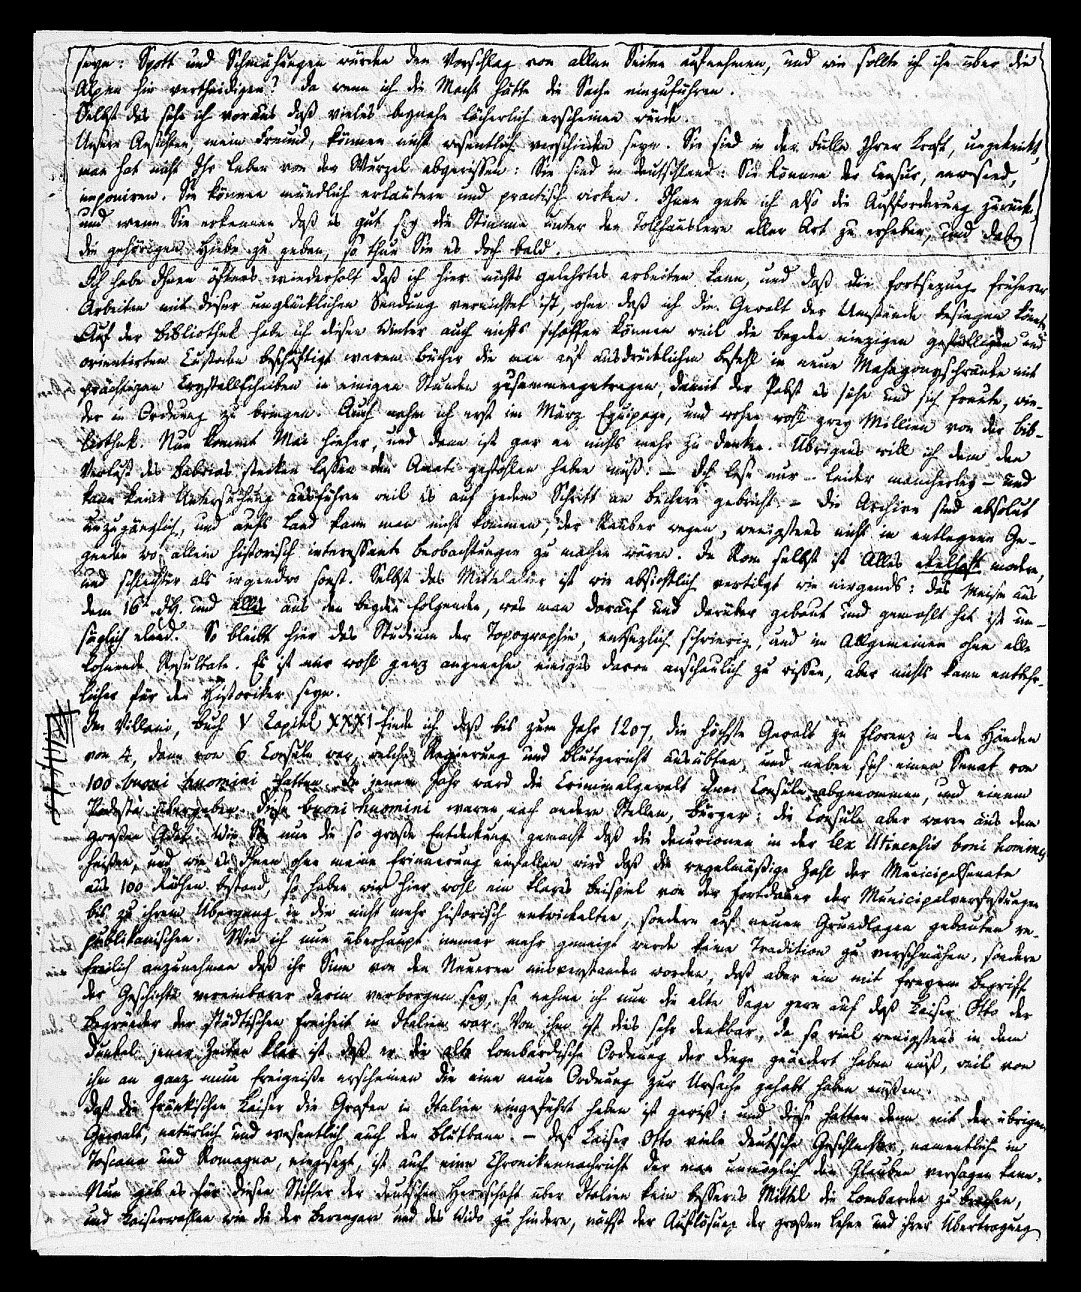 seyn: Spott und Schmähungen würden den Vorschlag von allen Seiten aufnehmen, und wie sollte ich ihn über die
Alpen hin vertheidigen? Ja wenn ich die Macht hätte die Sache einzuführen.
Selbst das sehe ich voraus daß vieles beynahe lächerlich erscheinen würde.
Unsere Ansichten, mein Freund, können nicht wesentlich verschieden seyn. Sie sind in der Fülle Ihrer Kraft, ungeknickt,
man hat nicht Ihr Leben von der Wurzel abgerissen: Sie sind in Deutschland: Sie können der Censur, anwesend,
imponiren. Sie können mündlich erläutern und practisch wirken. Ihnen gebe ich also die Aufforderung zurück,
und wenn Sie erkennen daß es gut sey die Stimme unter den Tollhäuslern aller Art zu erheben, und dabey
die gehörigen Hiebe zu geben, so thun Sie es doch bald.
Ich habe Ihnen öfters wiederholt daß ich hier nichts gelehrtes arbeiten kann, und daß die Fortsezung früherer
Arbeiten mit dieser unglücklichen Sendung vernichtet ist, ohne daß ich die Gewalt der Umstände besiegen könnte.
Auf der Bibliothek habe ich diesen Winter auch nichts schaffen können weil die beyden einzigen gefälligen und
orientirten Custoden beschäftigt waren Bücher die man auf ausdrücklichen Befehl in neue Mahagonyschränke mit
prächtigen Crystallscheiben in einigen Stunden zusammengetragen, damit der Pabst es sähe und sich freute, wie-
der in Ordnung zu bringen. Auch nahm ich erst im März Equipage, und wohne wohl zwey Millien von der Bib-
liothek. Nun kommt Mai hieher, und dann ist gar an nichts mehr zu denken. Übrigens will ich dem den
Verlust des Babrias stecken lassen den Amati gestohlen haben muß. – Ich lese nur – leider mancherley – und
kann keine Untersuchung ausführen weil es auf jedem Schritt an Büchern gebricht. – Die Archive sind absolut
unzugänglich, und aufs Land kann man nicht kommen, der Räuber wegen, wenigstens nicht in entlegene Ge-
genden wo allein historisch interessante Beobachtungen zu machen wären. In Rom selbst ist Alles ekelhaft modern,
und schlechter als irgendwo sonst. Selbst das Mittelalter ist wie absichtlich vertilgt wie nirgends: das Meiste aus
dem 16t. Jh. und alles aus den beyden folgenden, was man darauf und darüber gebaut und gemahlt hat ist un-
säglich elend. So bleibt hier das Studium der Topographie, entsezlich schwierig, und im Allgemeinen ohne alle
lohnende Resultate. Es ist nur wohl ganz angenehm einiges davon anschaulich zu wissen, aber nichts kann entbehr-
licher für den Historiker seyn.
Im Villani, Buch V Capitel XXXI finde ich daß bis zum Jahr 1207, die höchste Gewalt zu Florenz in den Händen
von 4, dann von 6 Consuln war, welche Regierung und Blutgericht ausübten, und neben sich einen Senat von
100 buoni huomini hatten. In jenem Jahr ward die Criminalgewalt den Consuln abgenommen, und einem
Podestà übergeben. Diese buoni huomini waren, nach andern Stellen, Bürger: die Consuln aber waren aus dem
großen Adel. Wie Sie nun die so große Entdeckung gemacht daß die decurionen in der lex Utinensis boni homines
heißen, und wie es Ihnen ohne meine Erinnerung einfallen wird daß die regelmäßige Zahl der Municipalsenate
aus 100 Köpfen bestand, so haben wir hier wohl ein klares Beispiel von der Fortdauer der Municipalverfassungen
bis zu ihrem Übergang in die nicht mehr historisch entwickelten, sondern auf neuen Grundlagen gebauten re-
publikanischen. Wie ich nun überhaupt immer mehr geneigt werde keine Tradition zu verschmähen, sondern
freilich anzunehmen daß ihr Sinn von den Neueren misverstanden worden, daß aber ein mit freyem Begriff
der Geschichte vereinbarer darin verborgen sey, so nehme ich nun die alte Sage gern auf daß Kaiser Otto der
Begründer der städtischen Freiheit in Italien war. Von ihm ist dies sehr denkbar, da so viel wenigstens in dem
Dunkel jener Zeiten klar ist daß er die alte lombardische Ordnung der Dinge geändert haben muß, weil von
ihm an ganz neue Ereignisse erscheinen die eine neue Ordnung zur Ursache gehabt haben müssen.
Daß die fränkischen Kaiser die Grafen in Italien eingeführt haben ist gewiß: und diese hatten denn mit der übrigen
Gewalt, natürlich und wesentlich auch den Blutbann. – Daß Kaiser Otto viele deutsche Geschlechter, namentlich in
Toscana und Romagna, eingesezt, ist auch eine Chronikennachricht der man unmöglich den Glauben versagen kann.
Nun gab es für diesen Stifter der deutschen Herrschaft über Italien kein besseres Mittel die Lombarden zu brechen,
und Kaiserwahlen wie die der Berengare und des Wido zu hindern, nächst der Auflösung der großen Lehen und ihrer Übertragung